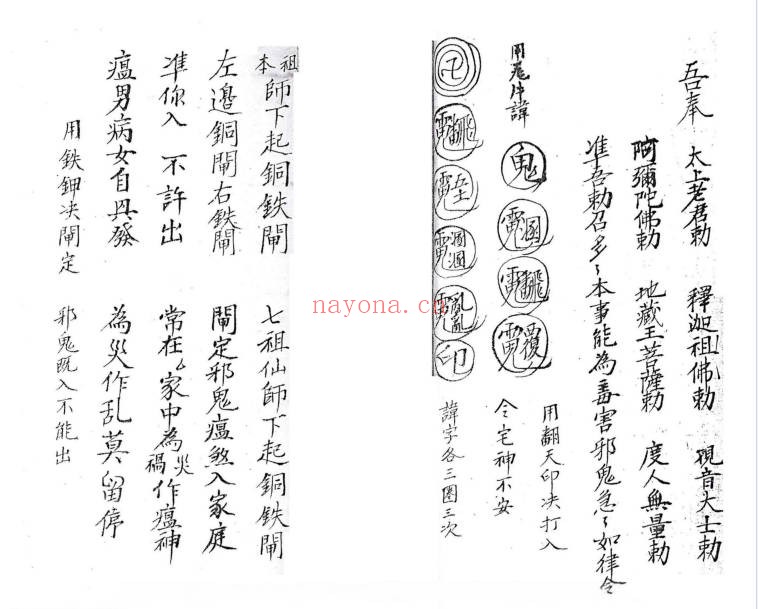 吾奉 太上老君勅 釋迦祖佛勅 視音大士勅
阿彌陀佛勅 地藏王菩薩勅 度人無量勅
準吾勅召多々本事能為毒害邪鬼急々如律令
鬼
用翻天印决打入
令宅神不安
卍
印
諱字各三圈三次
本祖師下起銅鉄閘 七祖仙師下起銅鉄閘
左邉銅閘右鉄閘 閘定邪鬼瘟煞入家庭
準你入 不許出 常在厶家中為災禍作瘟神
瘟男病女自具發 為災作乱莫留停
用鉄鉀决閘定 邪鬼既入不能出
nayona.cn